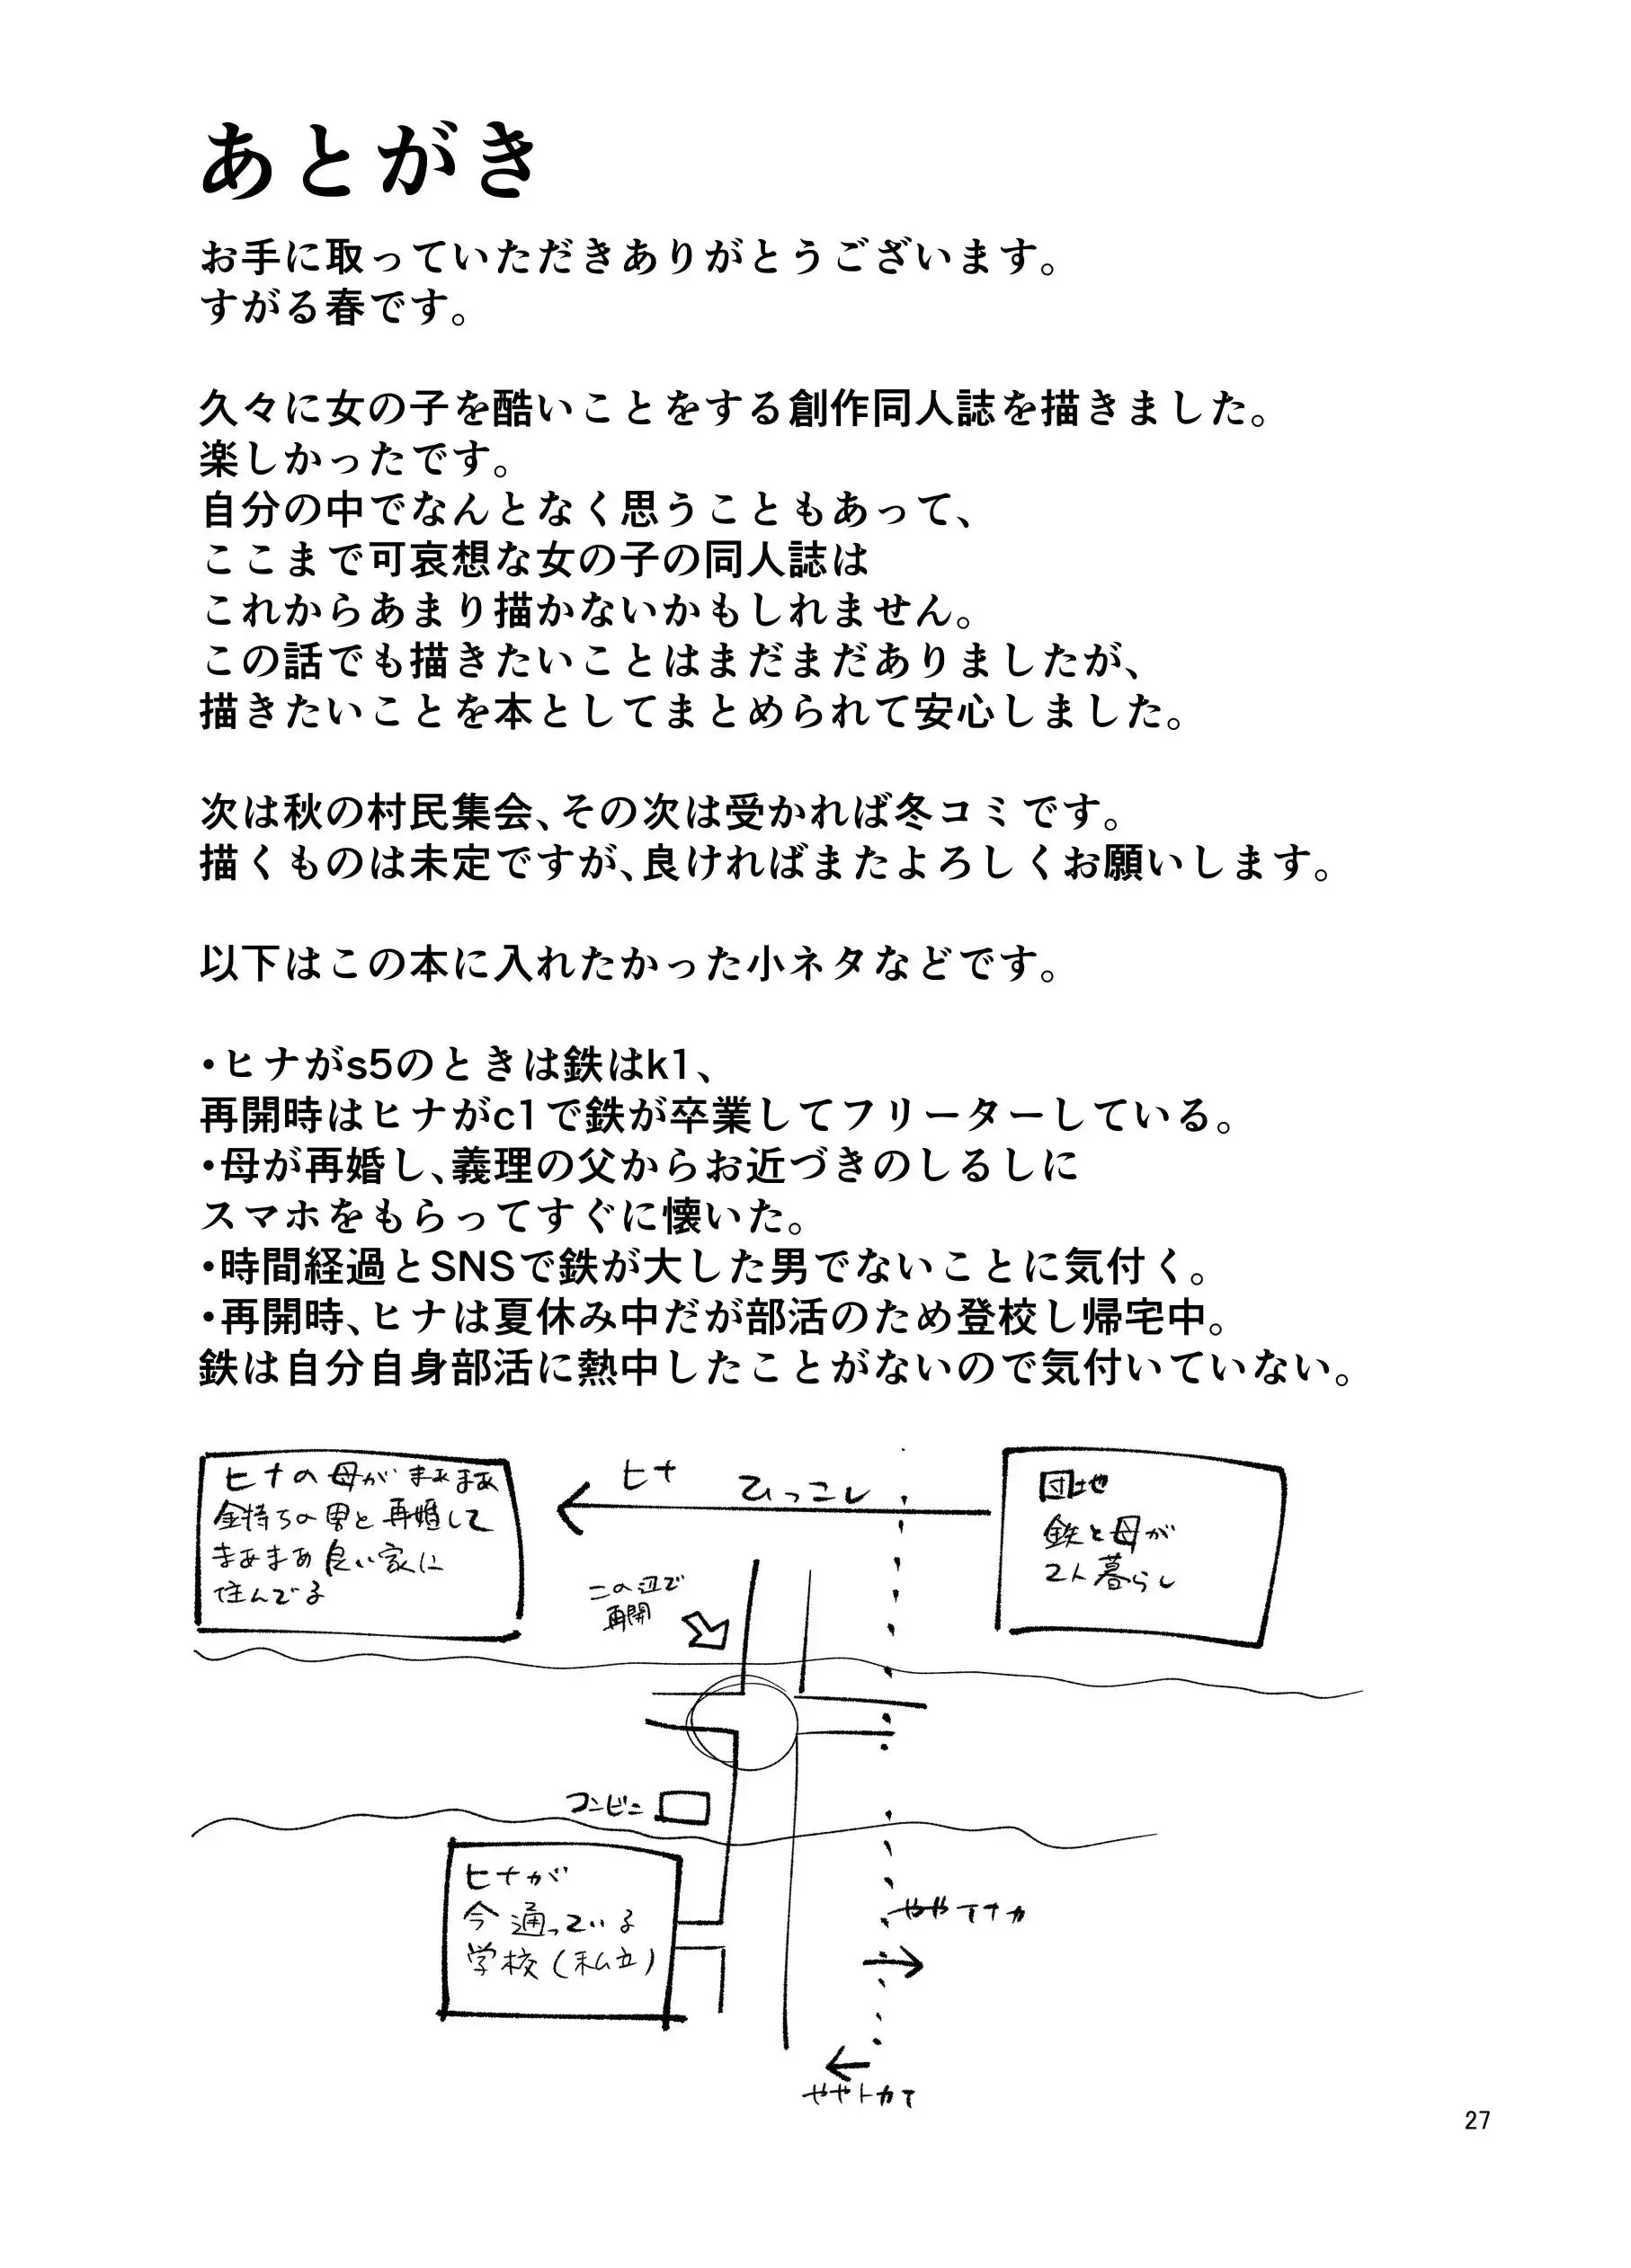 あとがき
お手に取っていただきありがとうございます。
すがる春です。
久々に女の子を酷いことをする創作同人誌を描きました。
楽しかったです。
自分の中でなんとなく思うこともあって、
ここまで可哀想な女の子の同人誌は
これからあまり描かないかもしれません。
この話でも描きたいことはまだまだありましたが、
描きたいことを本としてまとめられて安心しました。
次は秋の村民集会、その次は受かれば冬コミです。
描くものは未定ですが、良ければまたよろしくお願いします。
以下はこの本に入れたかった小ネタなどです。
・ヒナがs5のときは鉄はk1、
再開時はヒナがc1で鉄が卒業してフリーターしている。
・母が再婚し、義理の父からお近づきのしるしに
スマホをもらってすぐに懐いた。
・時間経過とSNSで鉄が大した男でないことに気付く。
・再開時、ヒナは夏休み中だが部活のため登校し帰宅中。
鉄は自分自身部活に熱中したことがないので気付いていない。
ヒナの母がまぁまぁ
金持ちの男と再婚して
まぁまぁ良い家に
住んでる
ヒナ ひっこし
団地
鉄と母が
2人暮らし
この辺で
再開
コンビニ
ヒナが
今通っている
学校(私立)
ややイナカ
ややトカイ
27